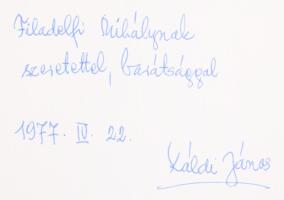 Filadelfi Mihálynak
szeretettel, barátsággal
1977. IV. 22.
Káldi János